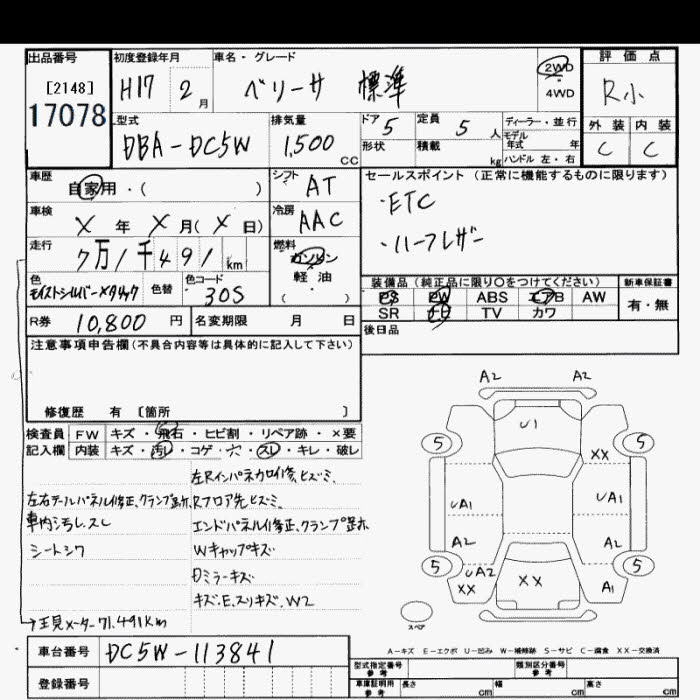 出品番号
[2148]
17078
初度登録年月
H17 2月
車名・グレード
ベリーサ 標準
2WD
4WD
評価点
R小
外装 内装
C C
型式
DBA-DC5W
排気量
1,500 CC
ドア 5
定員 5 人
形状
積載 kg
ディーラー・並行
モデル年式 年
ハンドル 左・右
車歴
自家用・( )
シフト
AT
車検
X 年 X 月 ( X 日)
冷房
AAC
走行
7万1千491 km
燃料
ガソリン
軽油
( )
色
モイストシルバーメタリック
色替
色コード
30S
セールスポイント (正常に機能するものに限ります)
・ETC
・ハーフレザー
装備品 (純正品に限り○をつけてください)
新車保証書
PS PW ABS エアB AW
有・無
SR ナビ TV カワ
後日品
R券 10,800 円
名変期限 月 日
注意事項申告欄 (不具合内容等は具体的に記入して下さい)
修復歴 有 〔箇所 〕
検査員
記入欄
FW キズ・飛石・ヒビ割・リペア跡・×要
内装 キズ・汚レ・コゲ・穴・スレ・キレ・破レ
左Rインパネカロイ修、ヒズミ
左右テールパネル修正、クランプ跡、ホ
Rフロア先ヒズミ
車内汚レ.スレ
エンドパネル修正、クランプ跡ホ
シートシワ
Wキャップキズ
Dミラーキズ
キズ.E.スリキズ.W2
メーター71,491km
車台番号
DC5W-113841
登録番号
A2 A2
U1
5 5
XX
UA1 UA1
A2 A2
5 5
UA2
XX
XX
A1
スペア
A2
A-キズ E-エクボ U-凹み W-補修跡 S-サビ C-腐食 XX-交換済
型式指定番号
参考
類別区分番号
参考
車庫証明用
参考
長さ cm
幅 cm
高さ cm